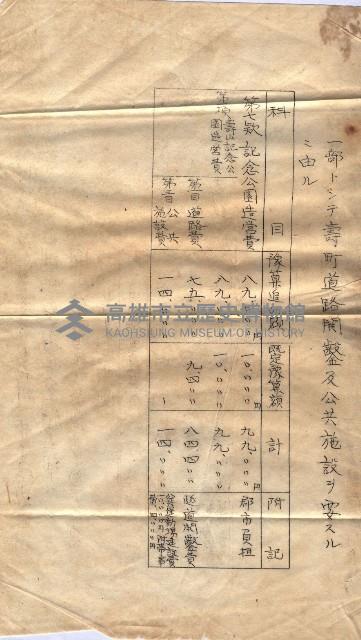 一部トシテ壽町道路開鑿及公共施設ヲ要スル
ニ由ル
科 目
豫算追加額
既定豫算額
計
附記
第七款 記念公園造營費
八九、〃〃〃円
一〇、〃〃〃円
九九、〃〃〃円
郡市負担
第一項 壽山記念公園造營費
八九、〃〃〃
一〇、〃〃〃
九九、〃〃〃
第一目 道路費
七五、〃〃〃
九、四〃〃
八四、四〃〃
道路開鑿費
第二目 公共施設費
一四、〃〃〃
一四、〃〃〃
高雄市立歷史博物館
KAOHSIUNG MUSEUM OF HISTORY